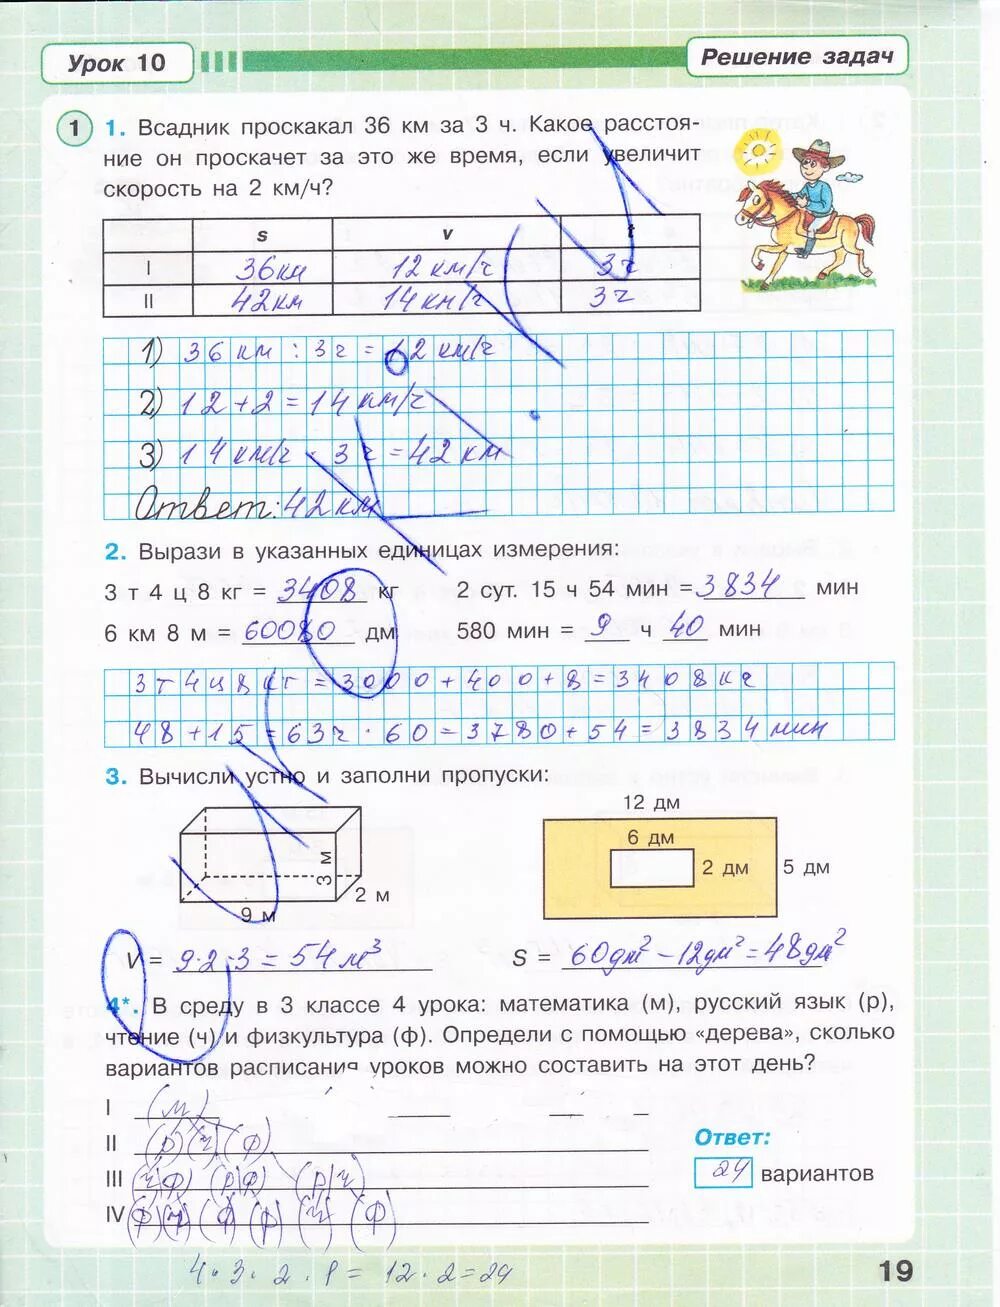 Урок 10
Решение задач
1 1. Всадник проскакал 36 км за 3 ч. Какое расстоя-
ние он проскачет за это же время, если увеличит
скорость на 2 км/ч?
s v t
I 36км 12 км/ч 3ч
II 42км 14км/ч 3ч
1) 36 км : 3ч = 12 км/ч
2) 12 + 2 = 14 км/ч
3) 14 км/ч · 3ч = 42 км
Ответ: 42 км
2. Вырази в указанных единицах измерения:
3 т 4 ц 8 кг = 3408 кг 2 сут. 15 ч 54 мин = 3834 мин
6 км 8 м = 60080 дм 580 мин = 9 ч 40 мин
3т4ц8кг = 3000 + 400 + 8 = 3408кг
48 + 15 = 63ч · 60 = 3780 + 54 = 3834 мин
3. Вычисли устно и заполни пропуски:
12 дм
6 дм
3 м
2 дм
5 дм
2 м
9 м
V = 9·2·3 = 54 м³ S = 60дм² – 12дм² = 48дм²
4*. В среду в 3 классе 4 урока: математика (м), русский язык (р),
чтение (ч) и физкультура (ф). Определи с помощью «дерева», сколько
вариантов расписания уроков можно составить на этот день?
I (м)
II (р) (ч) (ф)
Ответ:
III (ч)(ф) (р)(ф) (р)(ч)
24 вариантов
IV (ф)(ч) (ф) (р) (ч) (ф)
4 · 3 · 2 · 1 = 12 · 2 = 24
19